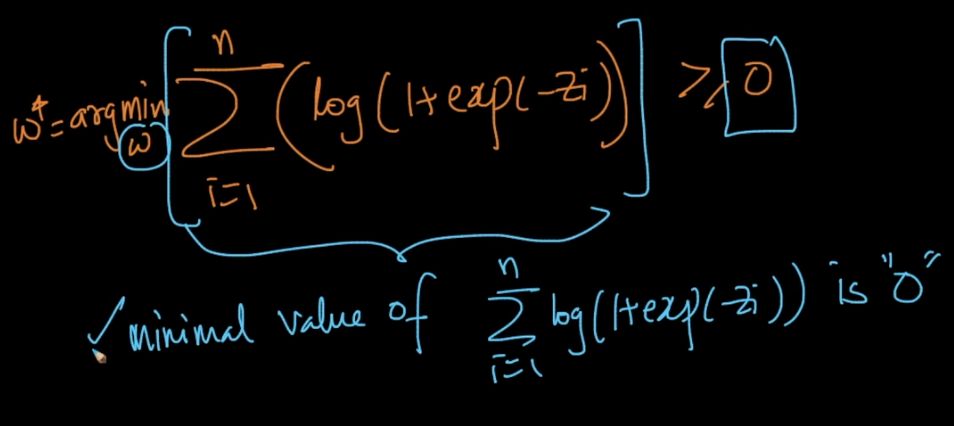 w* = argmin_w [ n∑i=1 ( log(1+exp(-zi)) ] ≥ 0
✓ minimal value of n∑i=1 log(1+exp(-zi)) is "0"